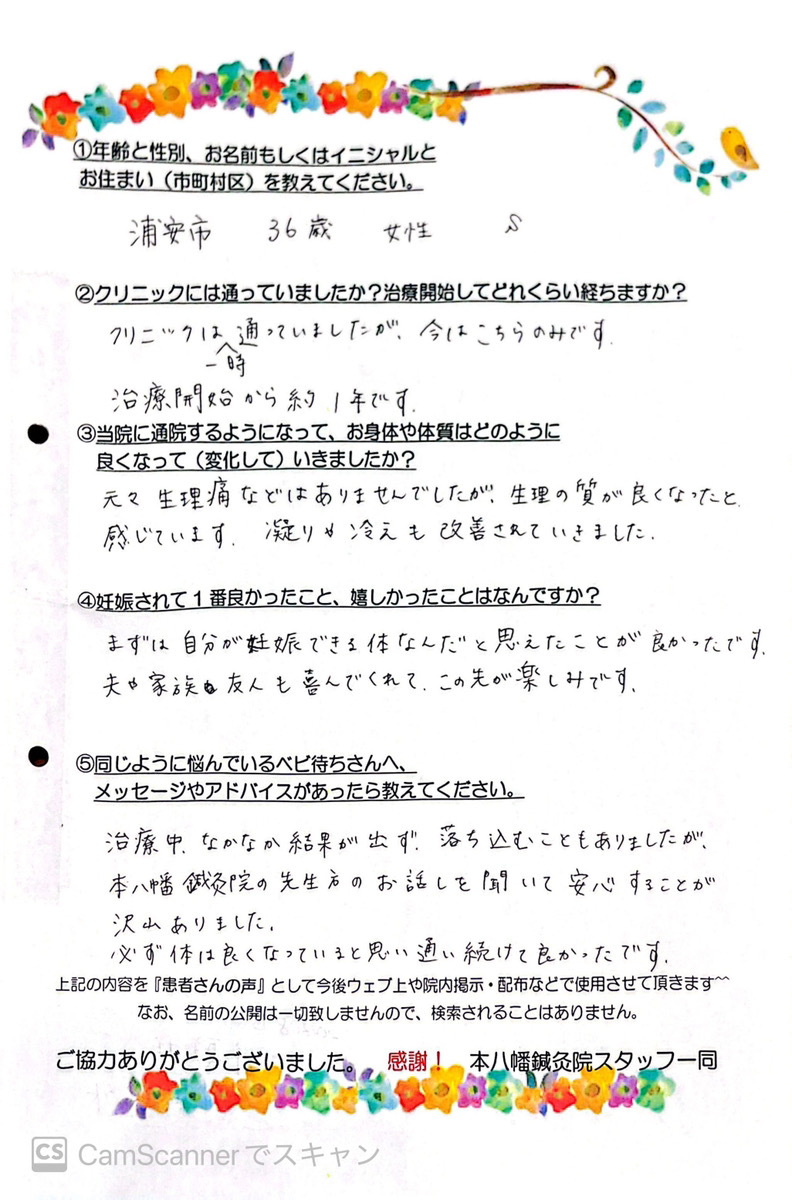 ①年齢と性別、お名前もしくはイニシャルと
お住まい（市町村区）を教えてください。
浦安市 36歳 女性 S
②クリニックには通っていましたか？治療開始してどれくらい経ちますか？
クリニックは通っていましたが、今はこちらのみです。
一時
治療開始から約1年です。
③当院に通院するようになって、お身体や体質はどのように
良くなって（変化して）いきましたか？
元々生理痛などはありませんでしたが、生理の質が良くなったと
感じています。凝りや冷えも改善されていきました。
④妊娠されて１番良かったこと、嬉しかったことはなんですか？
まずは自分が妊娠できる体なんだと思えたことが良かったです。
夫や家族、友人も喜んでくれて、この先が楽しみです。
⑤同じように悩んでいるベビ待ちさんへ、
メッセージやアドバイスがあったら教えてください。
治療中、なかなか結果が出ず、落ち込むこともありましたが、
本八幡鍼灸院の先生方のお話しを聞いて安心することが
沢山ありました。
必ず体は良くなっていると思い通い続けて良かったです。
上記の内容を『患者さんの声』として今後ウェブ上や院内掲示・配布などで使用させて頂きます^^
なお、名前の公開は一切致しませんので、検索されることはありません。
ご協力ありがとうございました。 感謝！ 本八幡鍼灸院スタッフ一同
CS CamScannerでスキャン